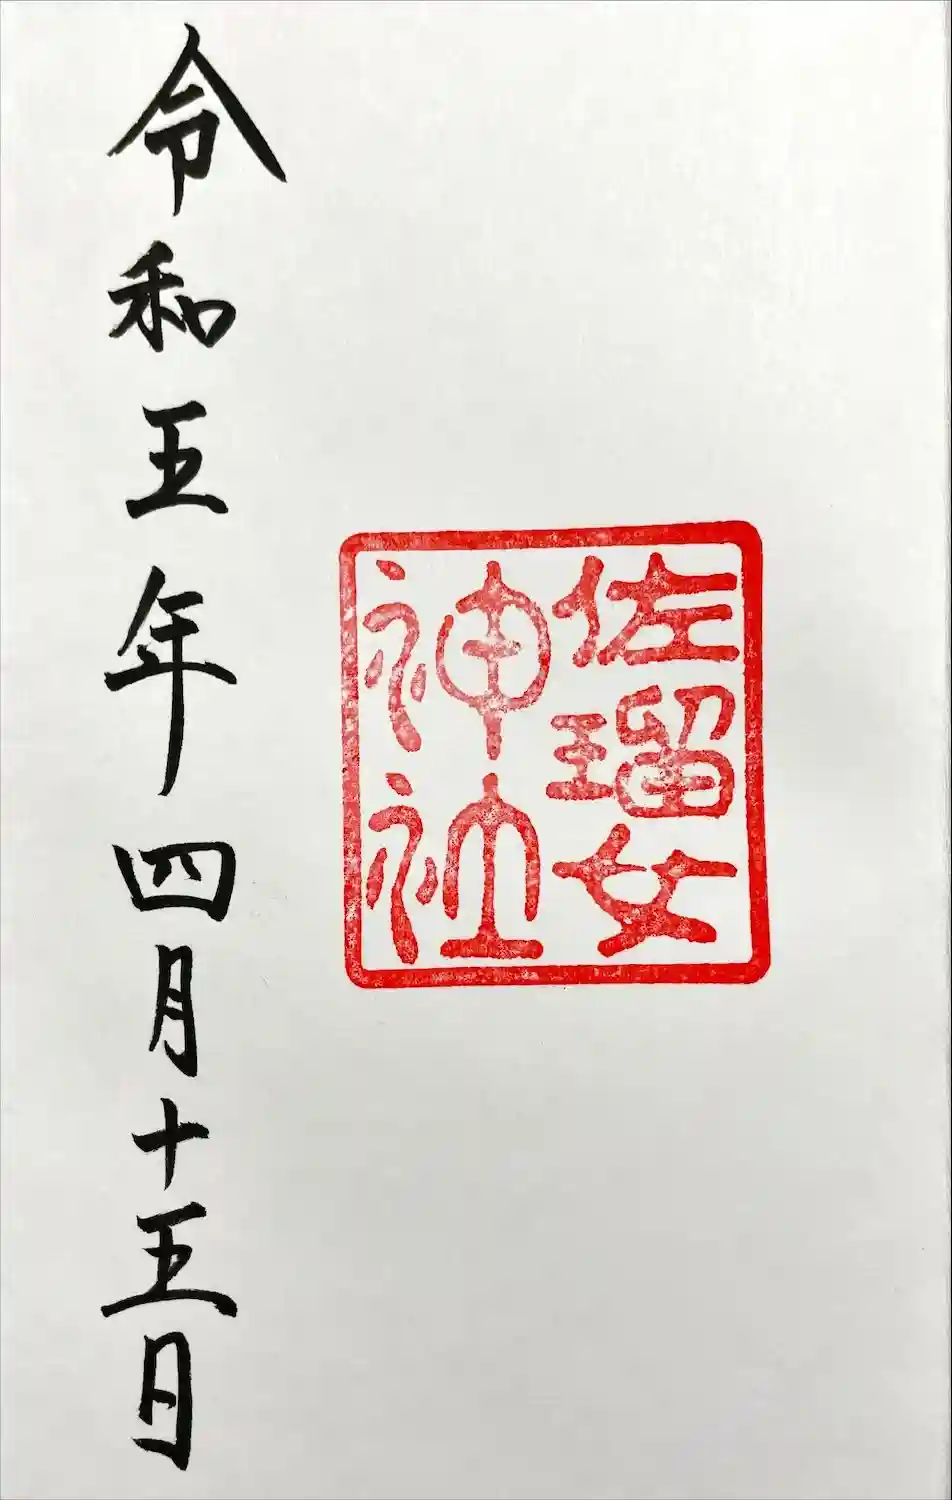 佐瑠女
神社
令和五年四月十五日